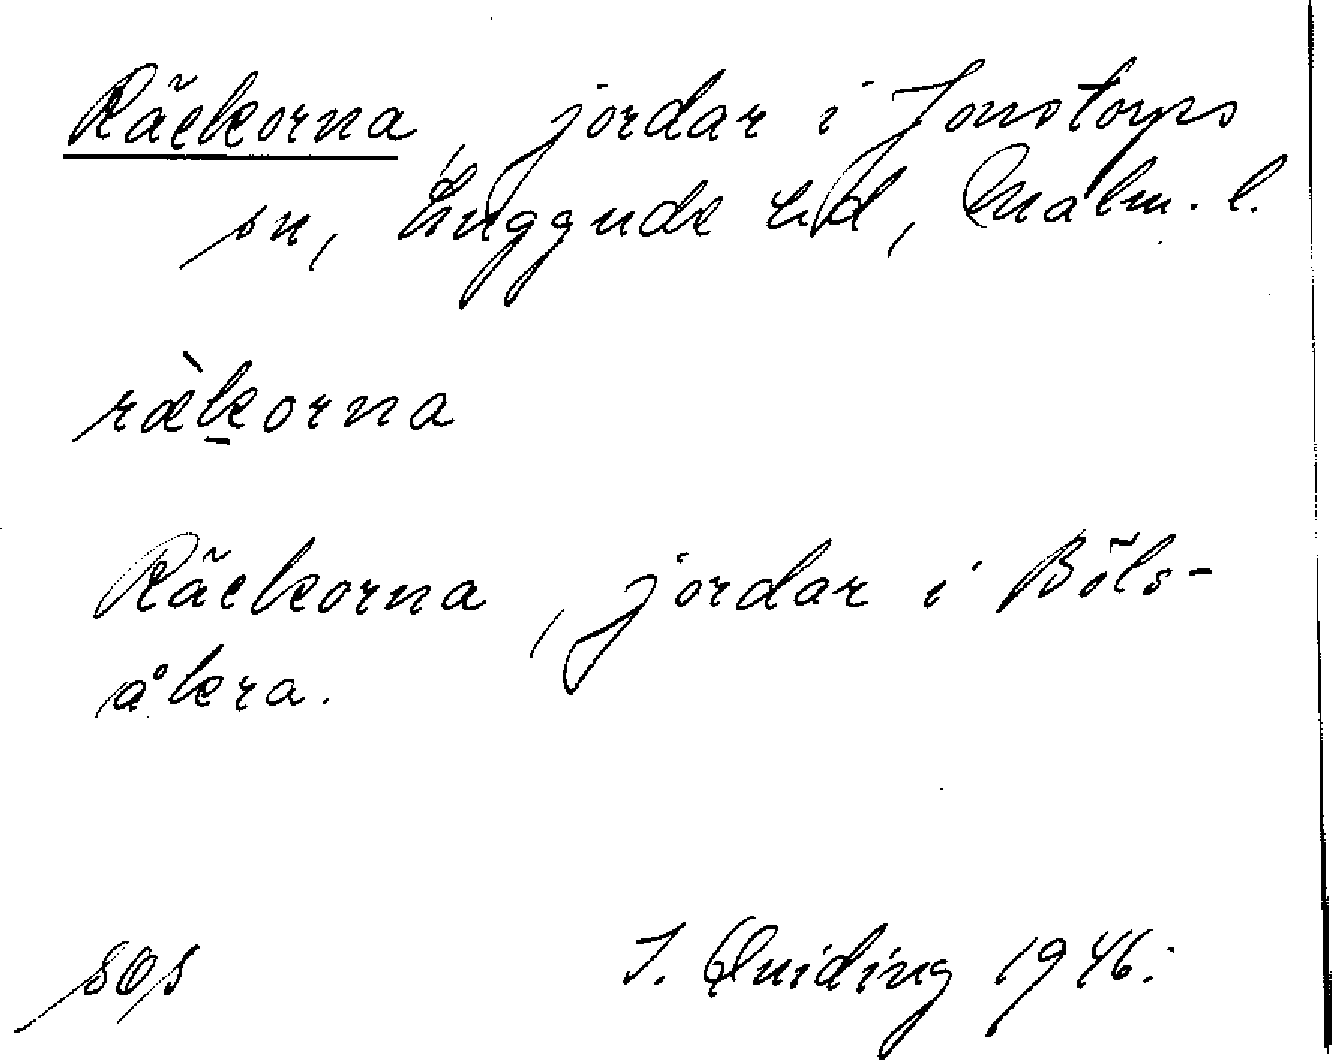 Räckorna, jordar i Jonstorps
sn, Luggude hd, Malm. l.
ræ̀ḵorna
Räckorna, jordar i Böls-
åkra.
J. Quiding 1946.